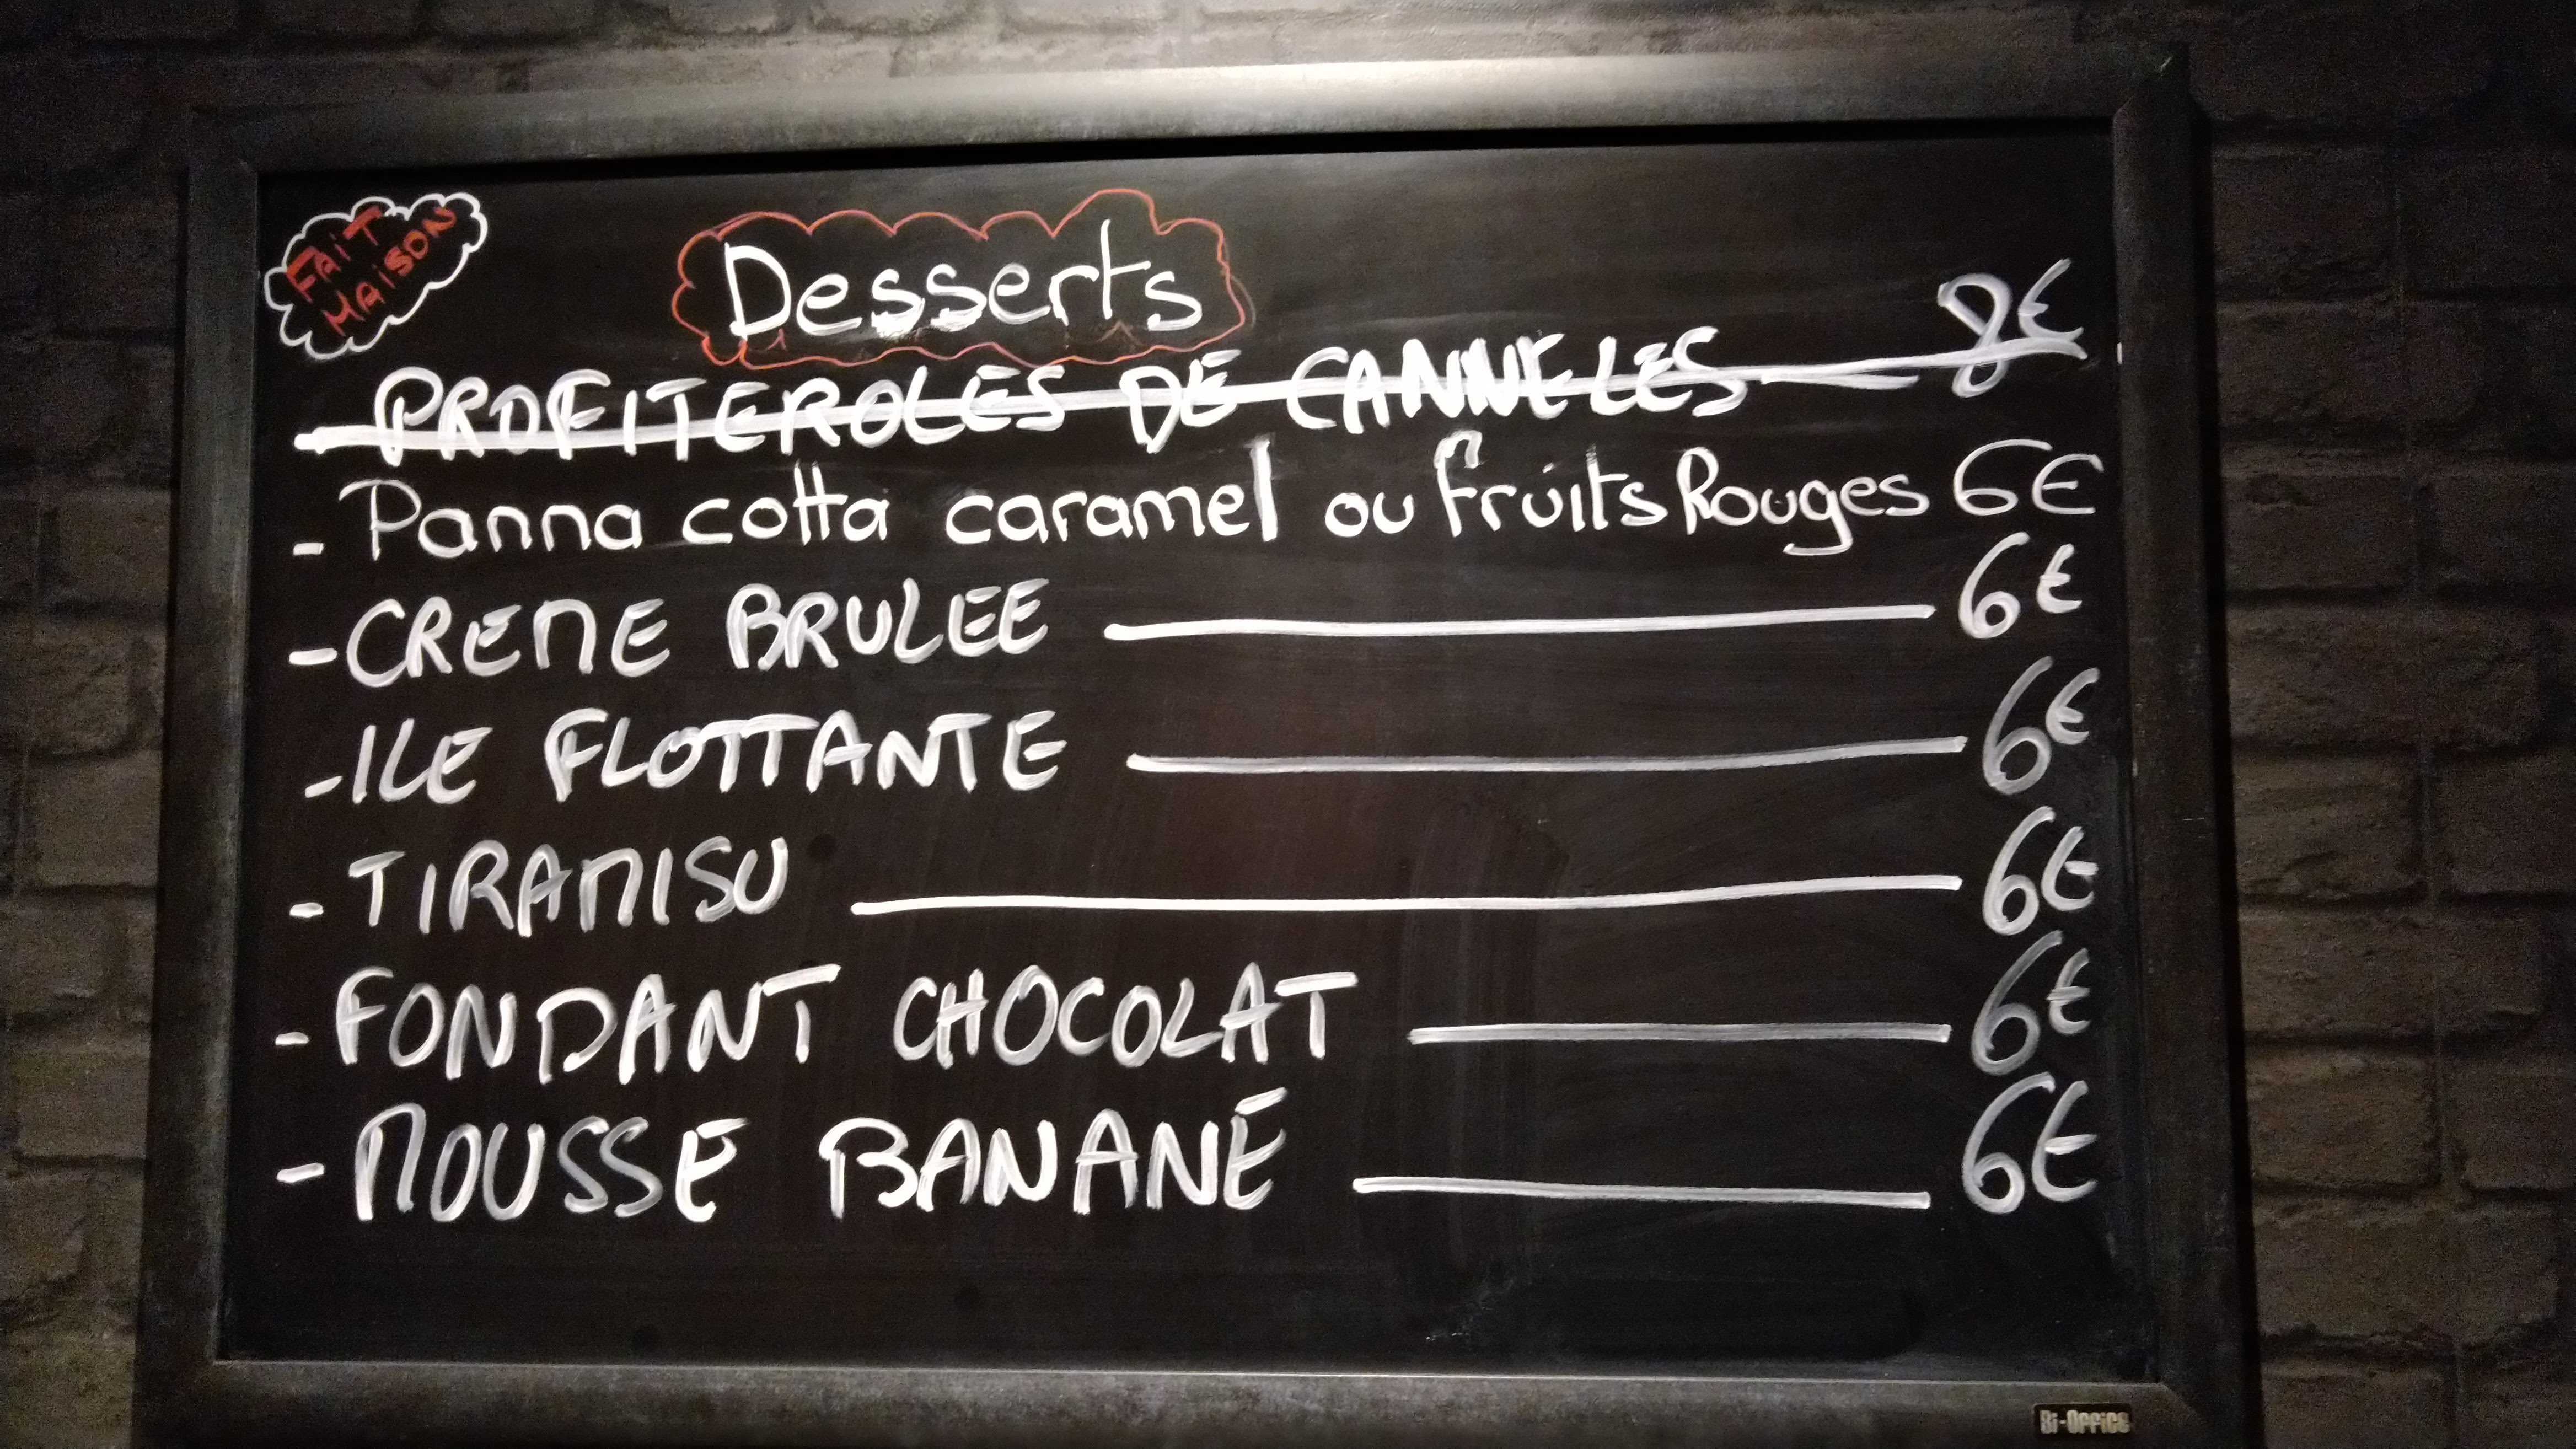 FAIT
MAISON
Desserts
- PROFITEROLES DE CANNELES — 8€
- Panna cotta caramel ou fruits Rouges 6€
- CREME BRULEE — 6€
- ILE FLOTTANTE — 6€
- TIRAMISU — 6€
- FONDANT CHOCOLAT — 6€
- MOUSSE BANANE — 6€
Bi-Office